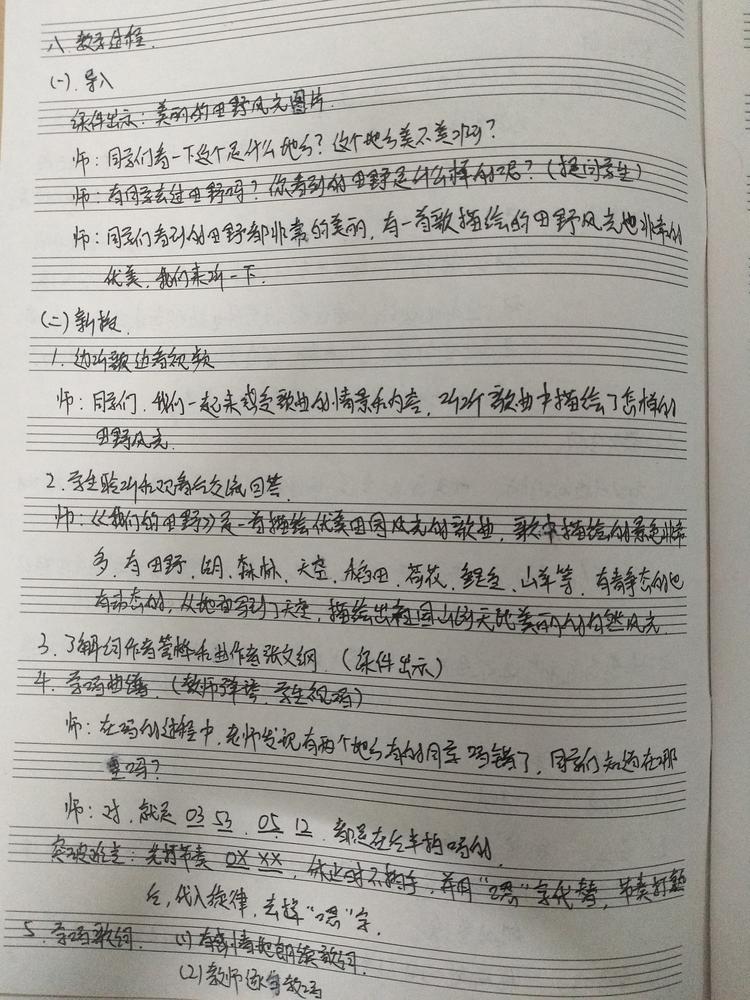 八、教学过程.
(一)导入
课件出示：美丽的田野风光图片.
师：同学们看一下这个是什么地方？这个地方美不美啊？
师：有同学去过田野吗？你看到的田野是什么样的呢？(提问学生)
师：同学们看到的田野都非常的美丽，有一首歌描绘的田野风光也非常的
优美，我们来听一下.
(二)新授.
1.边听歌边看视频
师：同学们，我们一起来感受歌曲的情景和内容，听听歌曲中描绘了怎样的
田野风光.
2.学生聆听和观看后交流回答.
师：《我们的田野》是一首描绘优美田园风光的歌曲，歌中描绘的景色非常
多，有田野、湖、森林、天空、稻田、荷花、鲤鱼、山羊等，有静态的也
有动态的，从地面写到了天空，描绘出祖国山河无比美丽的自然风光.
3.了解词作者管桦和曲作者张文纲.(课件出示)
4.学唱曲谱.(教师弹琴,学生视唱)
师：在唱的过程中，老师发现有两个地方有的同学唱错了，同学们知道在哪
里吗？
师：对，就是 03 53、05 12 都是在后半拍唱的.
突破难点：先打节奏 0X XX，休止时不拍手，并用“嗯”字代替，节奏打熟
后，代入旋律，去掉“嗯”字.
5.学唱歌词. (1)有感情地朗读歌词.
(2)教师逐句教唱